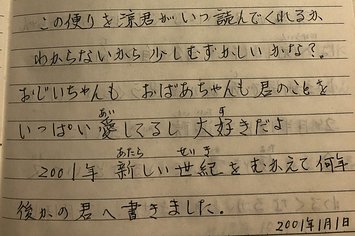 この便りを涼君がいつ読んでくれるか
わからないから少しむずかしいかな?。
おじいちゃんも おばあちゃんも君のことを
いっぱい愛してるし 大好きだよ
2001年 新しい世紀をむかえて何年
後かの君へ書きました。
2001年1月1日